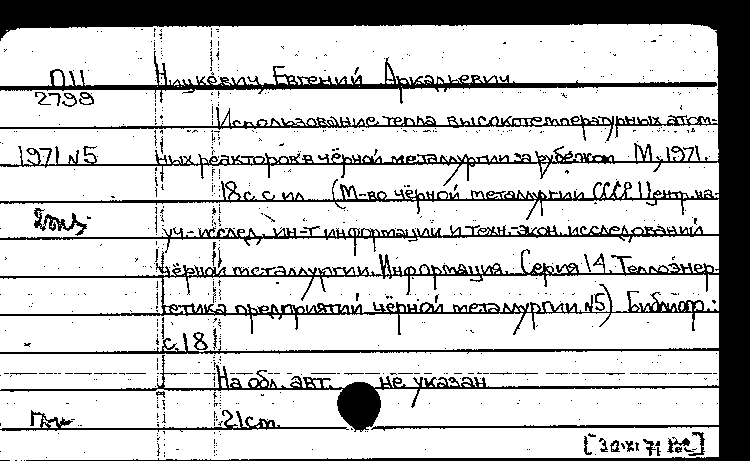 П11 Ницкевич, Евгений Аркадьевич.
2799
Использование тепла высокотемпературных атом-
1971 N5 ных реакторов в чёрной металлургии за рубежом М, 1971.
18 с. с ил (М-во чёрной металлургии СССР. Центр. на-
уч.-исслед. ин-т информации и техн.-экон. исследований
чёрной металлургии. Информация. Серия 14. Теплоэнер-
гетика предприятий чёрной металлургии. N5) Библиогр.:
с. 18
На обл. авт. не указан
21 см.